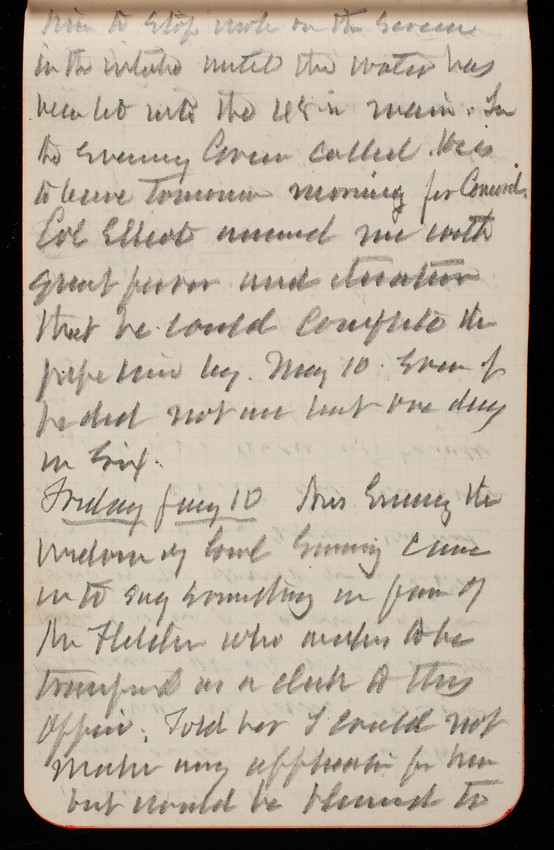 him to stop work on the Screen
in the intake until the water has
been let into the 48 in main. In
the evening Green called. He is
to leave tomorrow morning for Concord.
Col Elliot assured me with
great fervor and
that he could complete the
pipe line by May 10. Even if
he did not use but one day
in six.
Friday Jany 10 Mrs Emory the
widow of Genl Emory came
in to say something in favor of
Mr Fletcher who wishes to be
transferred as a clerk to this
Office. Told her I could not
make any application for him
but would be pleased to